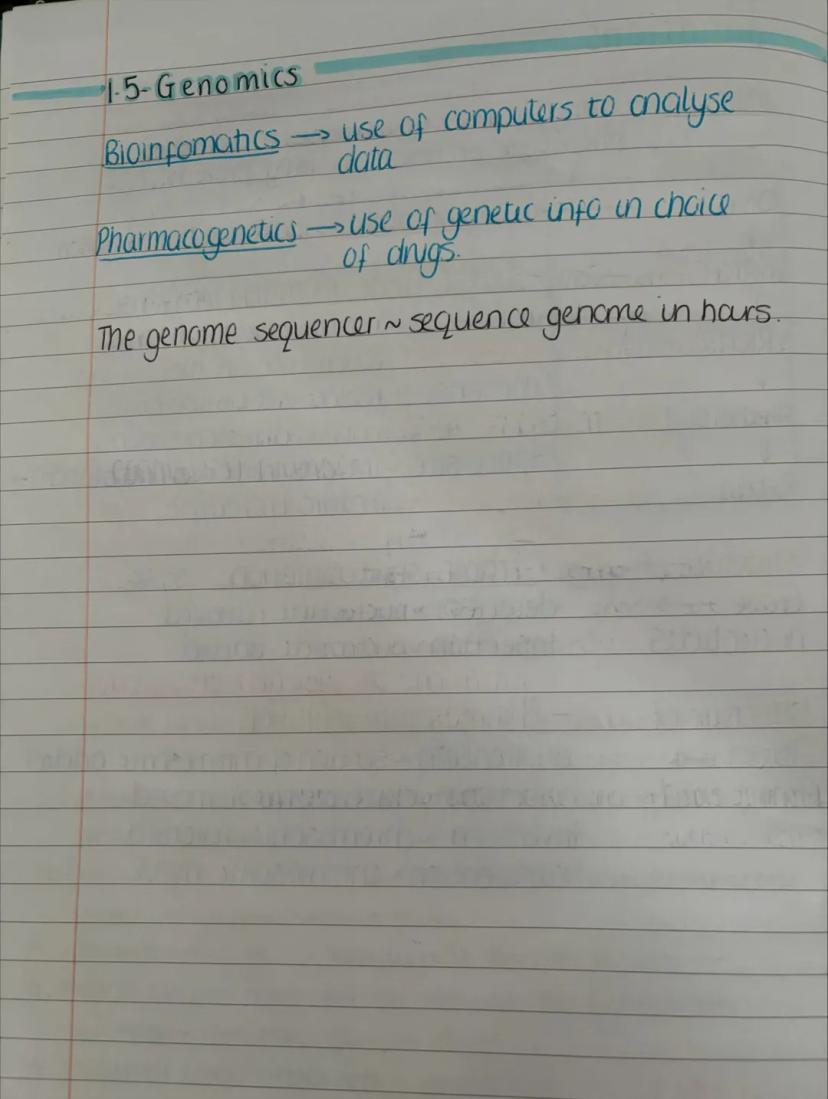 1.5-Genomics
Bioinfomatics → use of computers to analyse
data
Pharmacogenetics → use of genetic info in choice
of drugs.
The genome sequencer ~ sequence genome in hours.